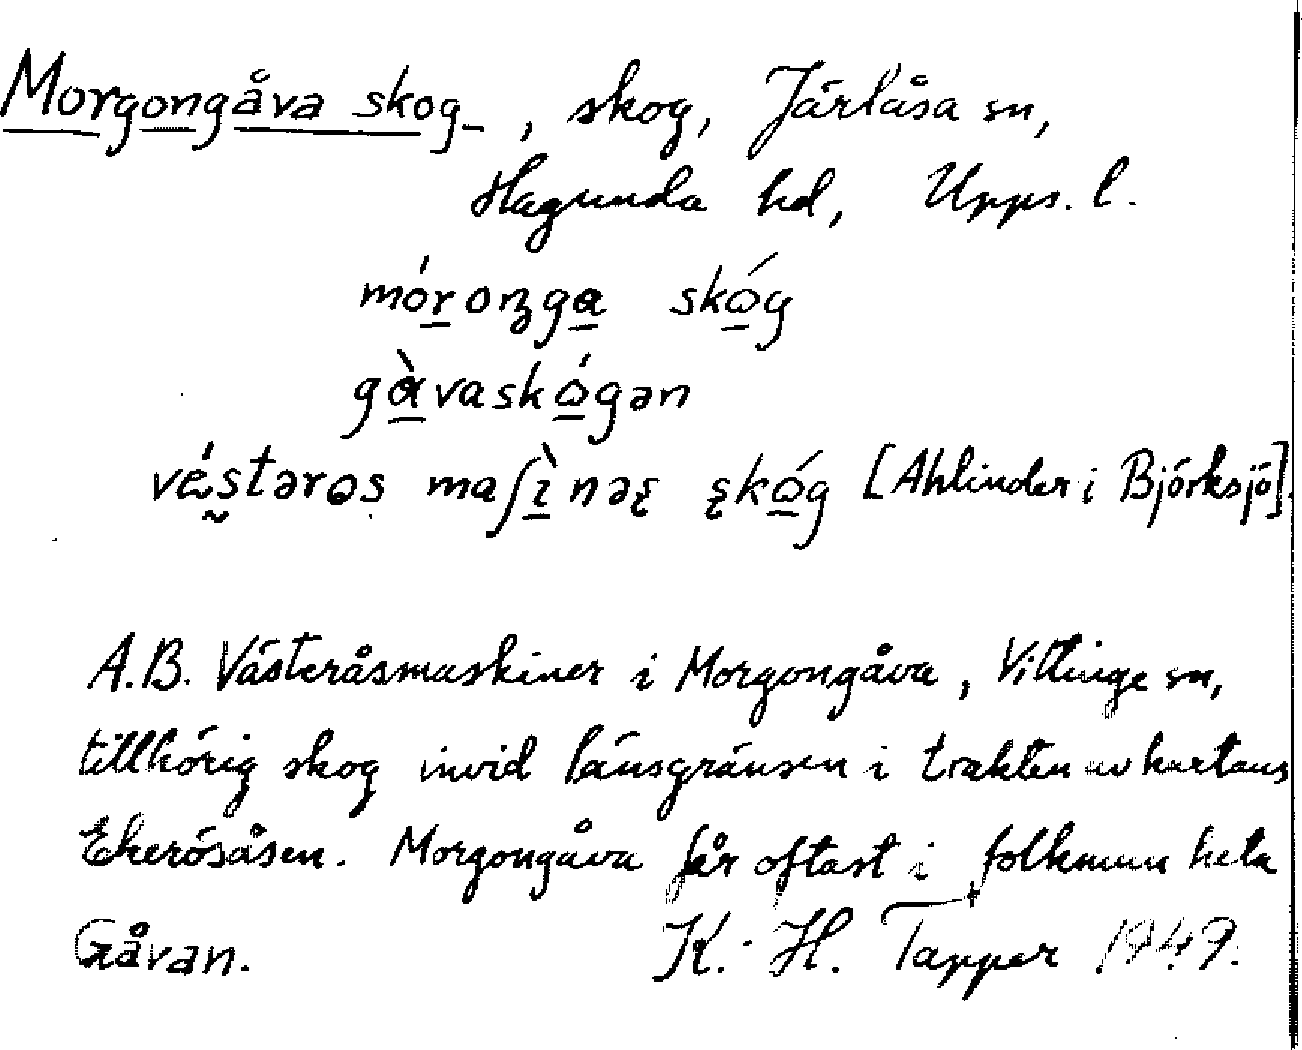 Morgongåva skog, skog, Järlåsa sn,
Hagunda hd, Upps. l.
móroŋga skóg
gàvaskógən
véstəros maʃìnəs skóg [Ahlinder i Björksjö].
A.B. Västeråsmaskiner i Morgongåva, Vittinge sn,
tillhörig skog invid länsgränsen i trakten av kartans
Ekerösåsen. Morgongåva får oftast i folkmun heta
Gåvan. K.-H. Tapper 1949.